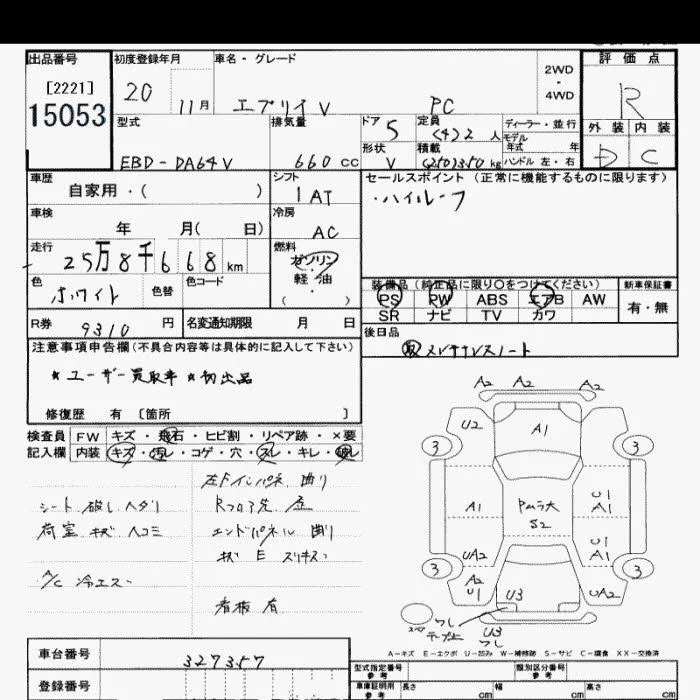 出品番号 初度登録年月 車名・グレード 2WD・4WD 評価点
[2221] 15053 20 11月 エブリイV PC R
型式 排気量 ドア 5 定員 (4)2人 ディーラー・並行 外装 内装
モデル年式 年
EBD-DA64V 660cc 形状 V 積載 (250)350kg ハンドル 左・右 D C
車歴 自家用・( ) シフト 1AT セールスポイント (正常に機能するものに限ります)
・ハイルーフ
車検 年 月( 日) 冷房 AC
走行 25万8千668km 燃料 ガソリン
軽・油
( )
色 ホワイト 色替 色コード
装備品(純正品に限り○をつけてください) 新車保証書
PS PW ABS エアB AW 有・無
SR ナビ TV カワ
R券 9310円 名変通知期限 月 日
後日品
取 メンテナンスノート
注意事項申告欄(不具合内容等は具体的に記入して下さい)
★ユーザー買取車 ★初出品
修復歴 有 〔箇所 〕
検査員 FW キズ・飛石・ヒビ割・リペア跡・×要
記入欄 内装 キズ・汚レ・コゲ・穴・スレ・キレ・破レ
左Fインパネ 曲り
シート 破レ ヘタリ
Rフロア先 歪
荷室 キズ ヘコミ
エンドパネル 曲り
キズ E スリキズ
A/C 冷エズ
看板 有
A2 A2 A2
U2 A1
3 3
A1 Pムラ大 S2 U1 A1
UA2 U1 A1
3 3
A2 U1 U3 UA2
ワレ
テープ止
U3
ワレ
A-キズ E-エクボ U-凹み W-補修跡 S-サビ C-腐食 XX-交換済
車台番号 327357
登録番号
型式指定番号 参考 類別区分番号 参考
車庫証明用 参考 長さ cm 幅 cm 高さ cm